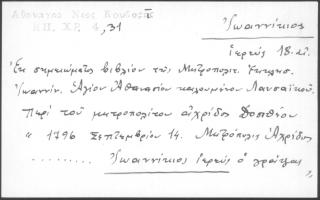 Αθάνατος Νέος Κουβαράς I
ΚΠ, ΧΡ, 4, 31
Ἰωαννίκιος
ἱερεύς 18. αἰ.
Ἐκ σημειώματος βιβλίου τῆς Μητροπόλ.
Ἰωαννίν. Ἁγίου Ἀθανασίου καλουμένου Λαυσαϊκοῦ.
Περί τοῦ μητροπολίτου ἀχρίδος Δοσιθέου
" 1796 Σεπτεμβρίου 14. Μητρόπολις Ἀχρίδος
......... Ἰωαννίκιος ἱερεύς ὁ γράψας